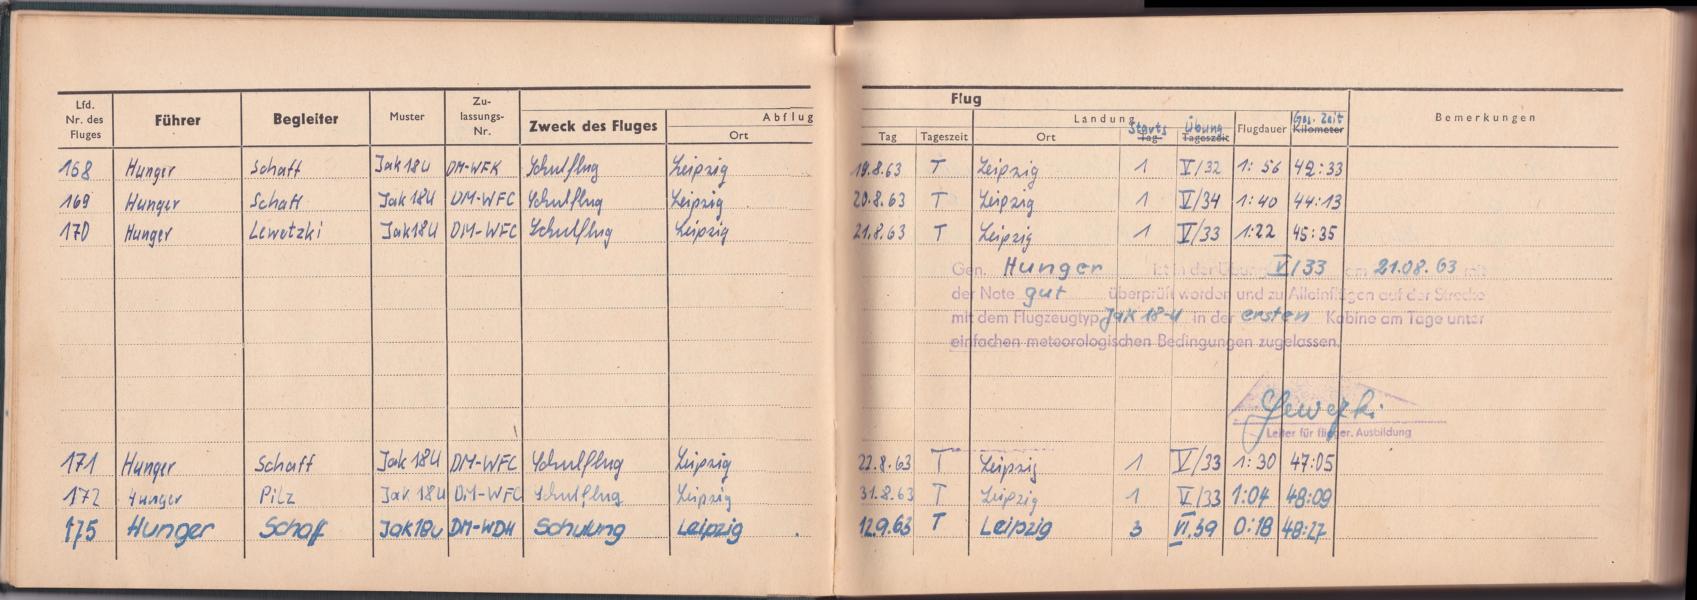 Flug
Lfd. Nr. des Fluges Führer Begleiter Muster Zu-lassungs-Nr. Zweck des Fluges Abflug Ort Tag Tageszeit Landung Ort Starts Tag Übung Tageszeit Flugdauer Ges. Zeit Kilometer Bemerkungen
168 Hunger Schaff Jak 18U DM-WFK Schulflug Leipzig 19.8.63 T Leipzig 1 V/32 1:56 42:33
169 Hunger Schaff Jak 18U DM-WFC Schulflug Leipzig 20.8.63 T Leipzig 1 V/34 1:40 44:13
170 Hunger Lewetzki Jak 18U DM-WFC Schulflug Leipzig 21.8.63 T Leipzig 1 V/33 1:22 45:35
Gen. Hunger ist in der Übung V/33 am 21.08.63 mit
der Note gut überprüft worden und zu Alleinflügen auf der Strecke
mit dem Flugzeugtyp Jak 18-U in der ersten Kabine am Tage unter
einfachen meteorologischen Bedingungen zugelassen.
Leiter für flieger. Ausbildung
171 Hunger Schaff Jak 18U DM-WFC Schulflug Leipzig 22.8.63 T Leipzig 1 V/33 1:30 47:05
172 Hunger Pilz Jak 18U DM-WFC Schulflug Leipzig 31.8.63 T Leipzig 1 V/33 1:04 48:09
175 Hunger Schaff Jak 18u DM-WDH Schulung Leipzig 12.9.63 T Leipzig 3 VI.39 0:18 48:27